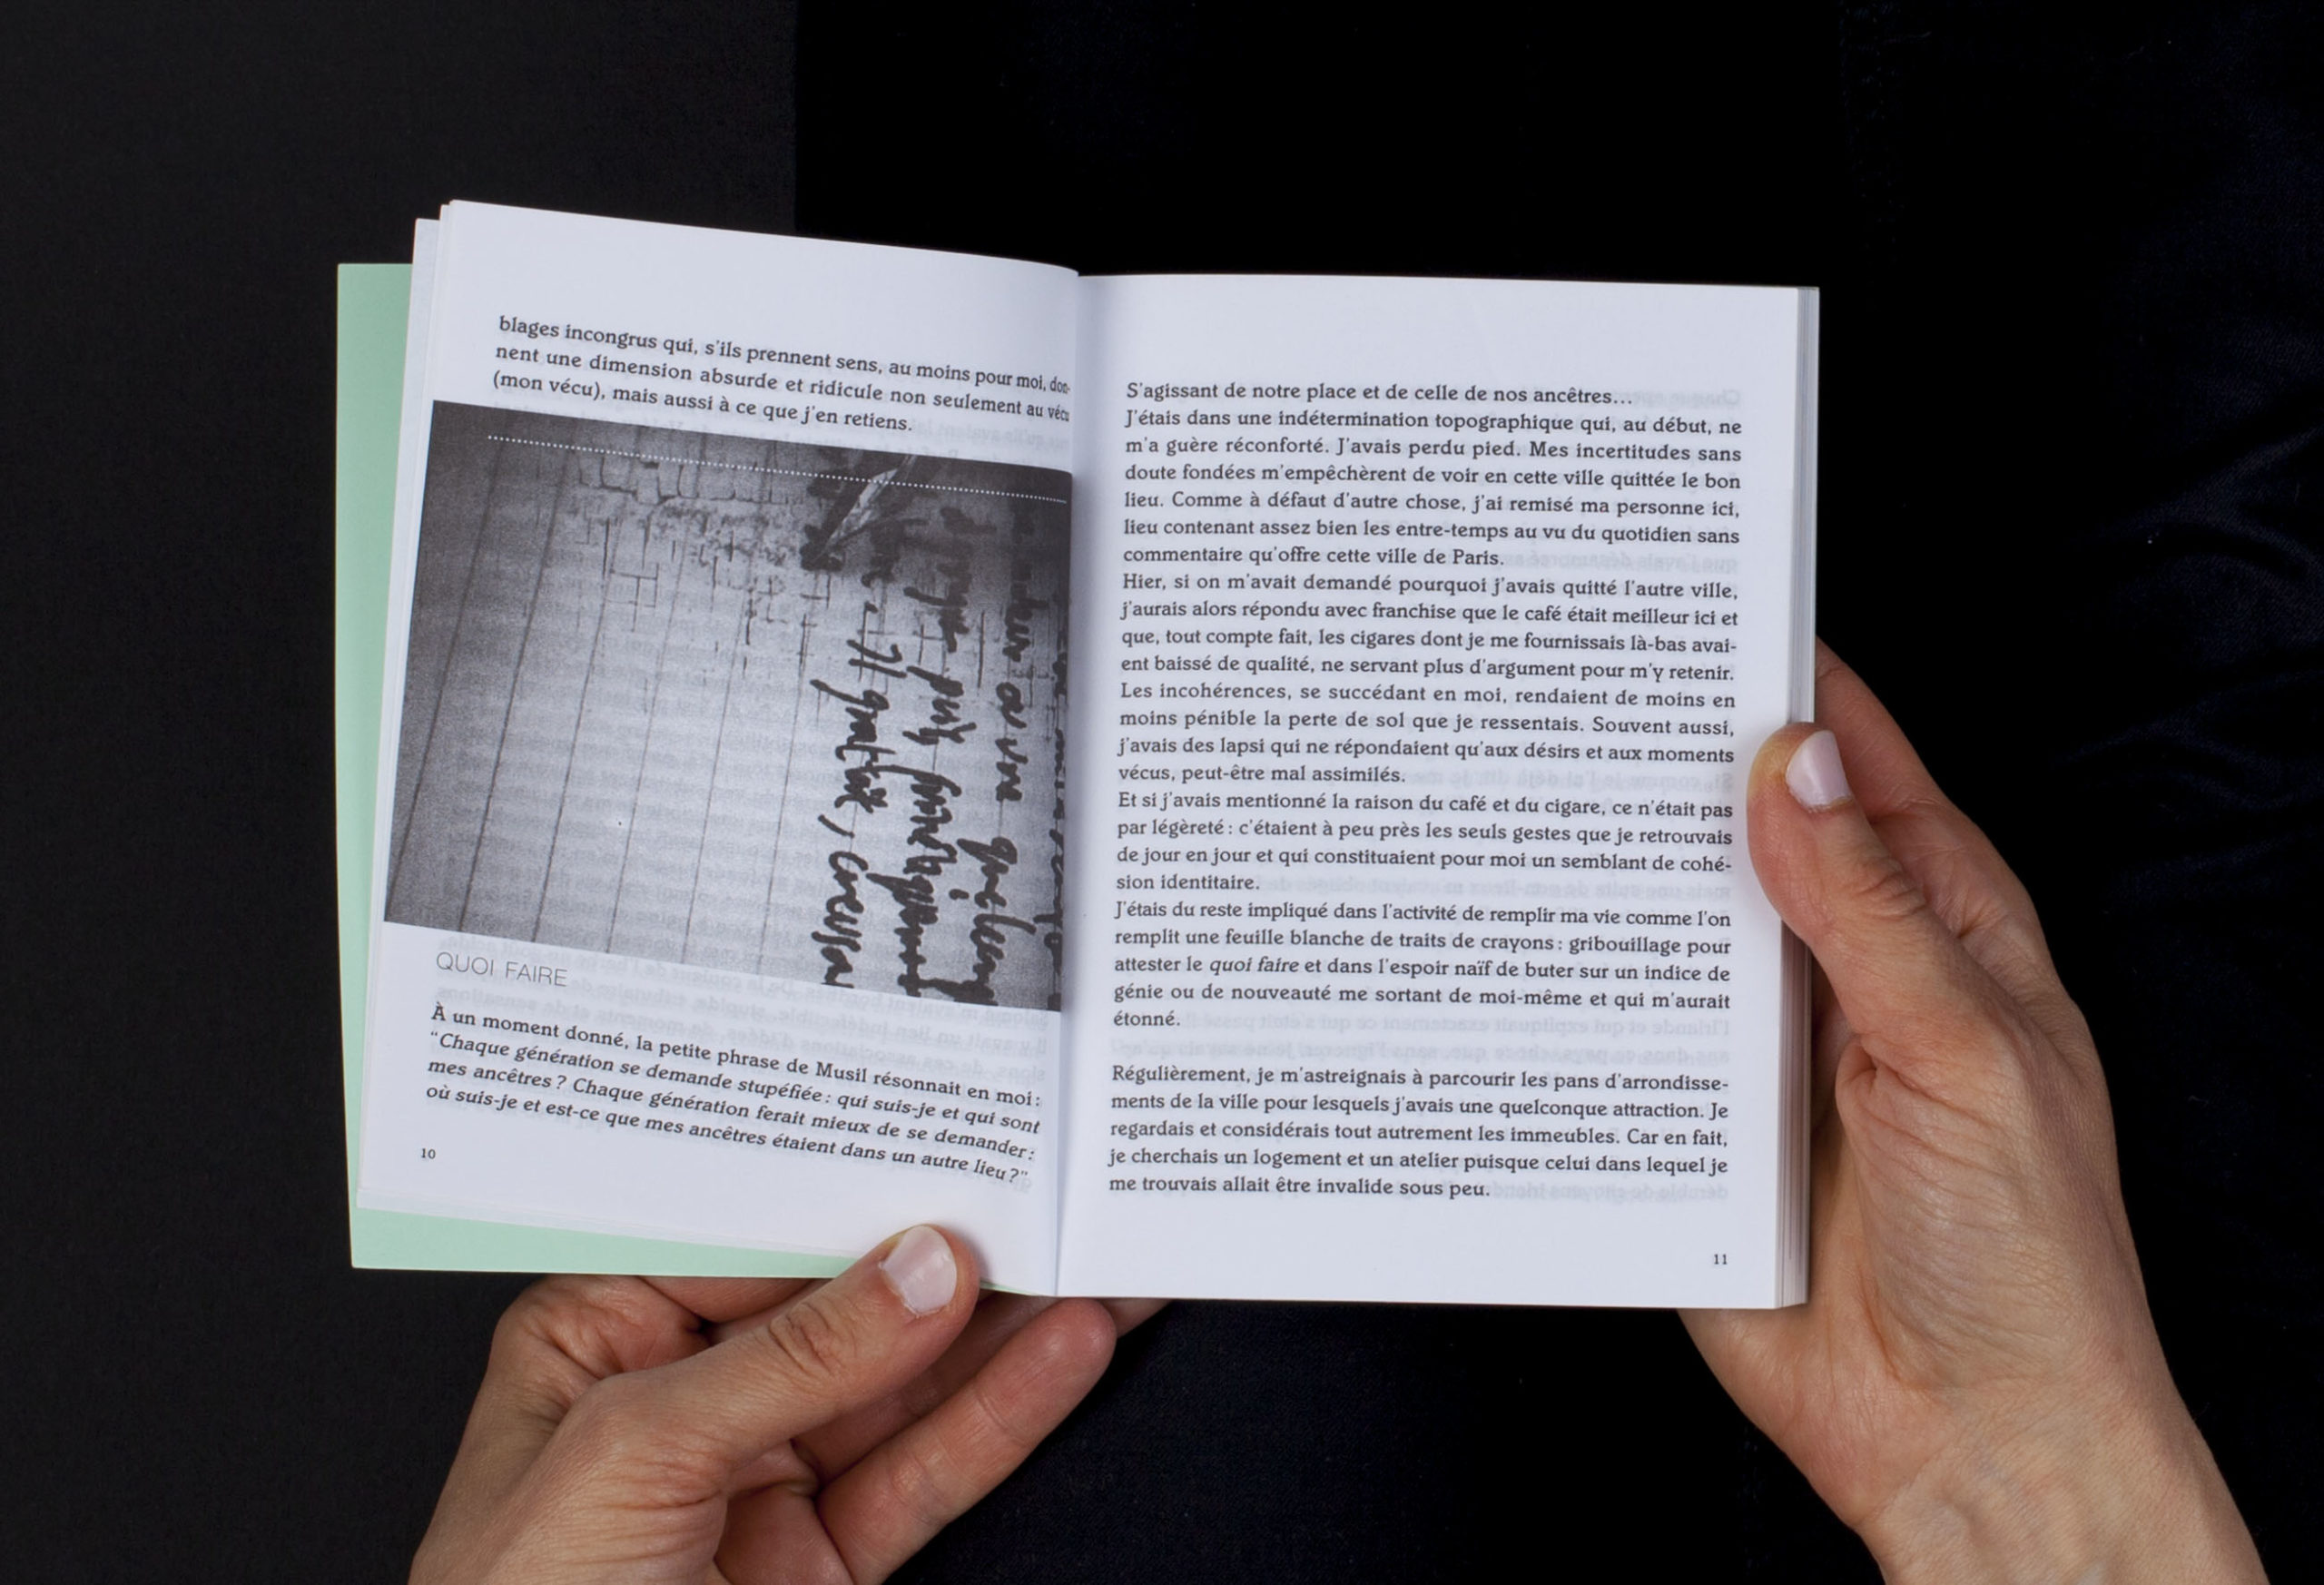 blages incongrus qui, s'ils prennent sens, au moins pour moi, don-
nent une dimension absurde et ridicule non seulement au vécu
(mon vécu), mais aussi à ce que j'en retiens.
QUOI FAIRE
À un moment donné, la petite phrase de Musil résonnait en moi :
“Chaque génération se demande stupéfiée : qui suis-je et qui sont
mes ancêtres ? Chaque génération ferait mieux de se demander :
où suis-je et est-ce que mes ancêtres étaient dans un autre lieu ?”
10
S'agissant de notre place et de celle de nos ancêtres…
J'étais dans une indétermination topographique qui, au début, ne
m'a guère réconforté. J'avais perdu pied. Mes incertitudes sans
doute fondées m'empêchèrent de voir en cette ville quittée le bon
lieu. Comme à défaut d'autre chose, j'ai remisé ma personne ici,
lieu contenant assez bien les entre-temps au vu du quotidien sans
commentaire qu'offre cette ville de Paris.
Hier, si on m'avait demandé pourquoi j'avais quitté l'autre ville,
j'aurais alors répondu avec franchise que le café était meilleur ici et
que, tout compte fait, les cigares dont je me fournissais là-bas avai-
ent baissé de qualité, ne servant plus d'argument pour m'y retenir.
Les incohérences, se succédant en moi, rendaient de moins en
moins pénible la perte de sol que je ressentais. Souvent aussi,
j'avais des lapsi qui ne répondaient qu'aux désirs et aux moments
vécus, peut-être mal assimilés.
Et si j'avais mentionné la raison du café et du cigare, ce n'était pas
par légèreté : c'étaient à peu près les seuls gestes que je retrouvais
de jour en jour et qui constituaient pour moi un semblant de cohé-
sion identitaire.
J'étais du reste impliqué dans l'activité de remplir ma vie comme l'on
remplit une feuille blanche de traits de crayons : gribouillage pour
attester le quoi faire et dans l'espoir naïf de buter sur un indice de
génie ou de nouveauté me sortant de moi-même et qui m'aurait
étonné.
Régulièrement, je m'astreignais à parcourir les pans d'arrondisse-
ments de la ville pour lesquels j'avais une quelconque attraction. Je
regardais et considérais tout autrement les immeubles. Car en fait,
je cherchais un logement et un atelier puisque celui dans lequel je
me trouvais allait être invalide sous peu.
11